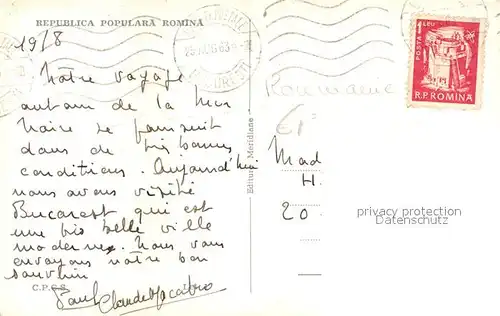 REPUBLICA POPULARA ROMINA
19/8
Notre voyage
autour de la Mer
Noire se poursuit
dans de très bonnes
conditions. Aujourd'hui
nous avons visité
Bucarest qui est
une très belle ville
moderne. Nous vous
envoyons notre bon
souvenir
Paul
C.P.C.S.
Editura Meridiane
POSTA
1 LEU
R.P. ROMINA
Roumanie
Mad
H
20
privacy protection
Datenschutz